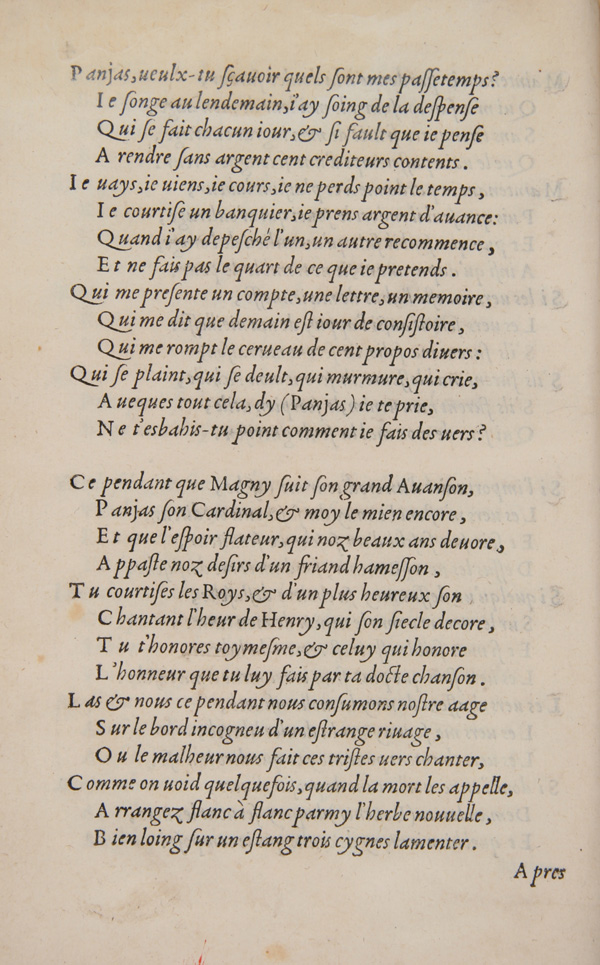 Panjas, ueulx-tu sçauoir quels sont mes passetemps?
Ie songe au lendemain, i'ay soing de la despense
Qui se fait chacun iour, & si fault que ie pense
A rendre sans argent cent crediteurs contents.
Ie uays, ie uiens, ie cours, ie ne perds point le temps,
Ie courtise un banquier, ie prens argent d'auance:
Quand i'ay depesché l'un, un autre recommence,
Et ne fais pas le quart de ce que ie pretends.
Qui me presente un compte, une lettre, un memoire,
Qui me dit que demain est iour de consistoire,
Qui me rompt le cerueau de cent propos diuers:
Qui se plaint, qui se deult, qui murmure, qui crie,
Aueques tout cela, dy (Panjas) ie te prie,
Ne t'esbahis-tu point comment ie fais des uers?
Ce pendant que Magny suit son grand Auanson,
Panjas son Cardinal, & moy le mien encore,
Et que l'espoir flateur, qui noz beaux ans deuore,
Appaste noz desirs d'un friand hamesson,
Tu courtises les Roys, & d'un plus heureux son
Chantant l'heur de Henry, qui son siecle decore,
Tu t'honores toymesme, & celuy qui honore
L'honneur que tu luy fais par ta docte chanson.
Las & nous ce pendant nous consumons nostre aage
Sur le bord incogneu d'un estrange riuage,
Ou le malheur nous fait ces tristes uers chanter,
Comme on uoid quelquefois, quand la mort les appelle,
Arrangez flanc à flanc parmy l'herbe nouuelle,
Bien loing sur un estang trois cygnes lamenter.
Apres